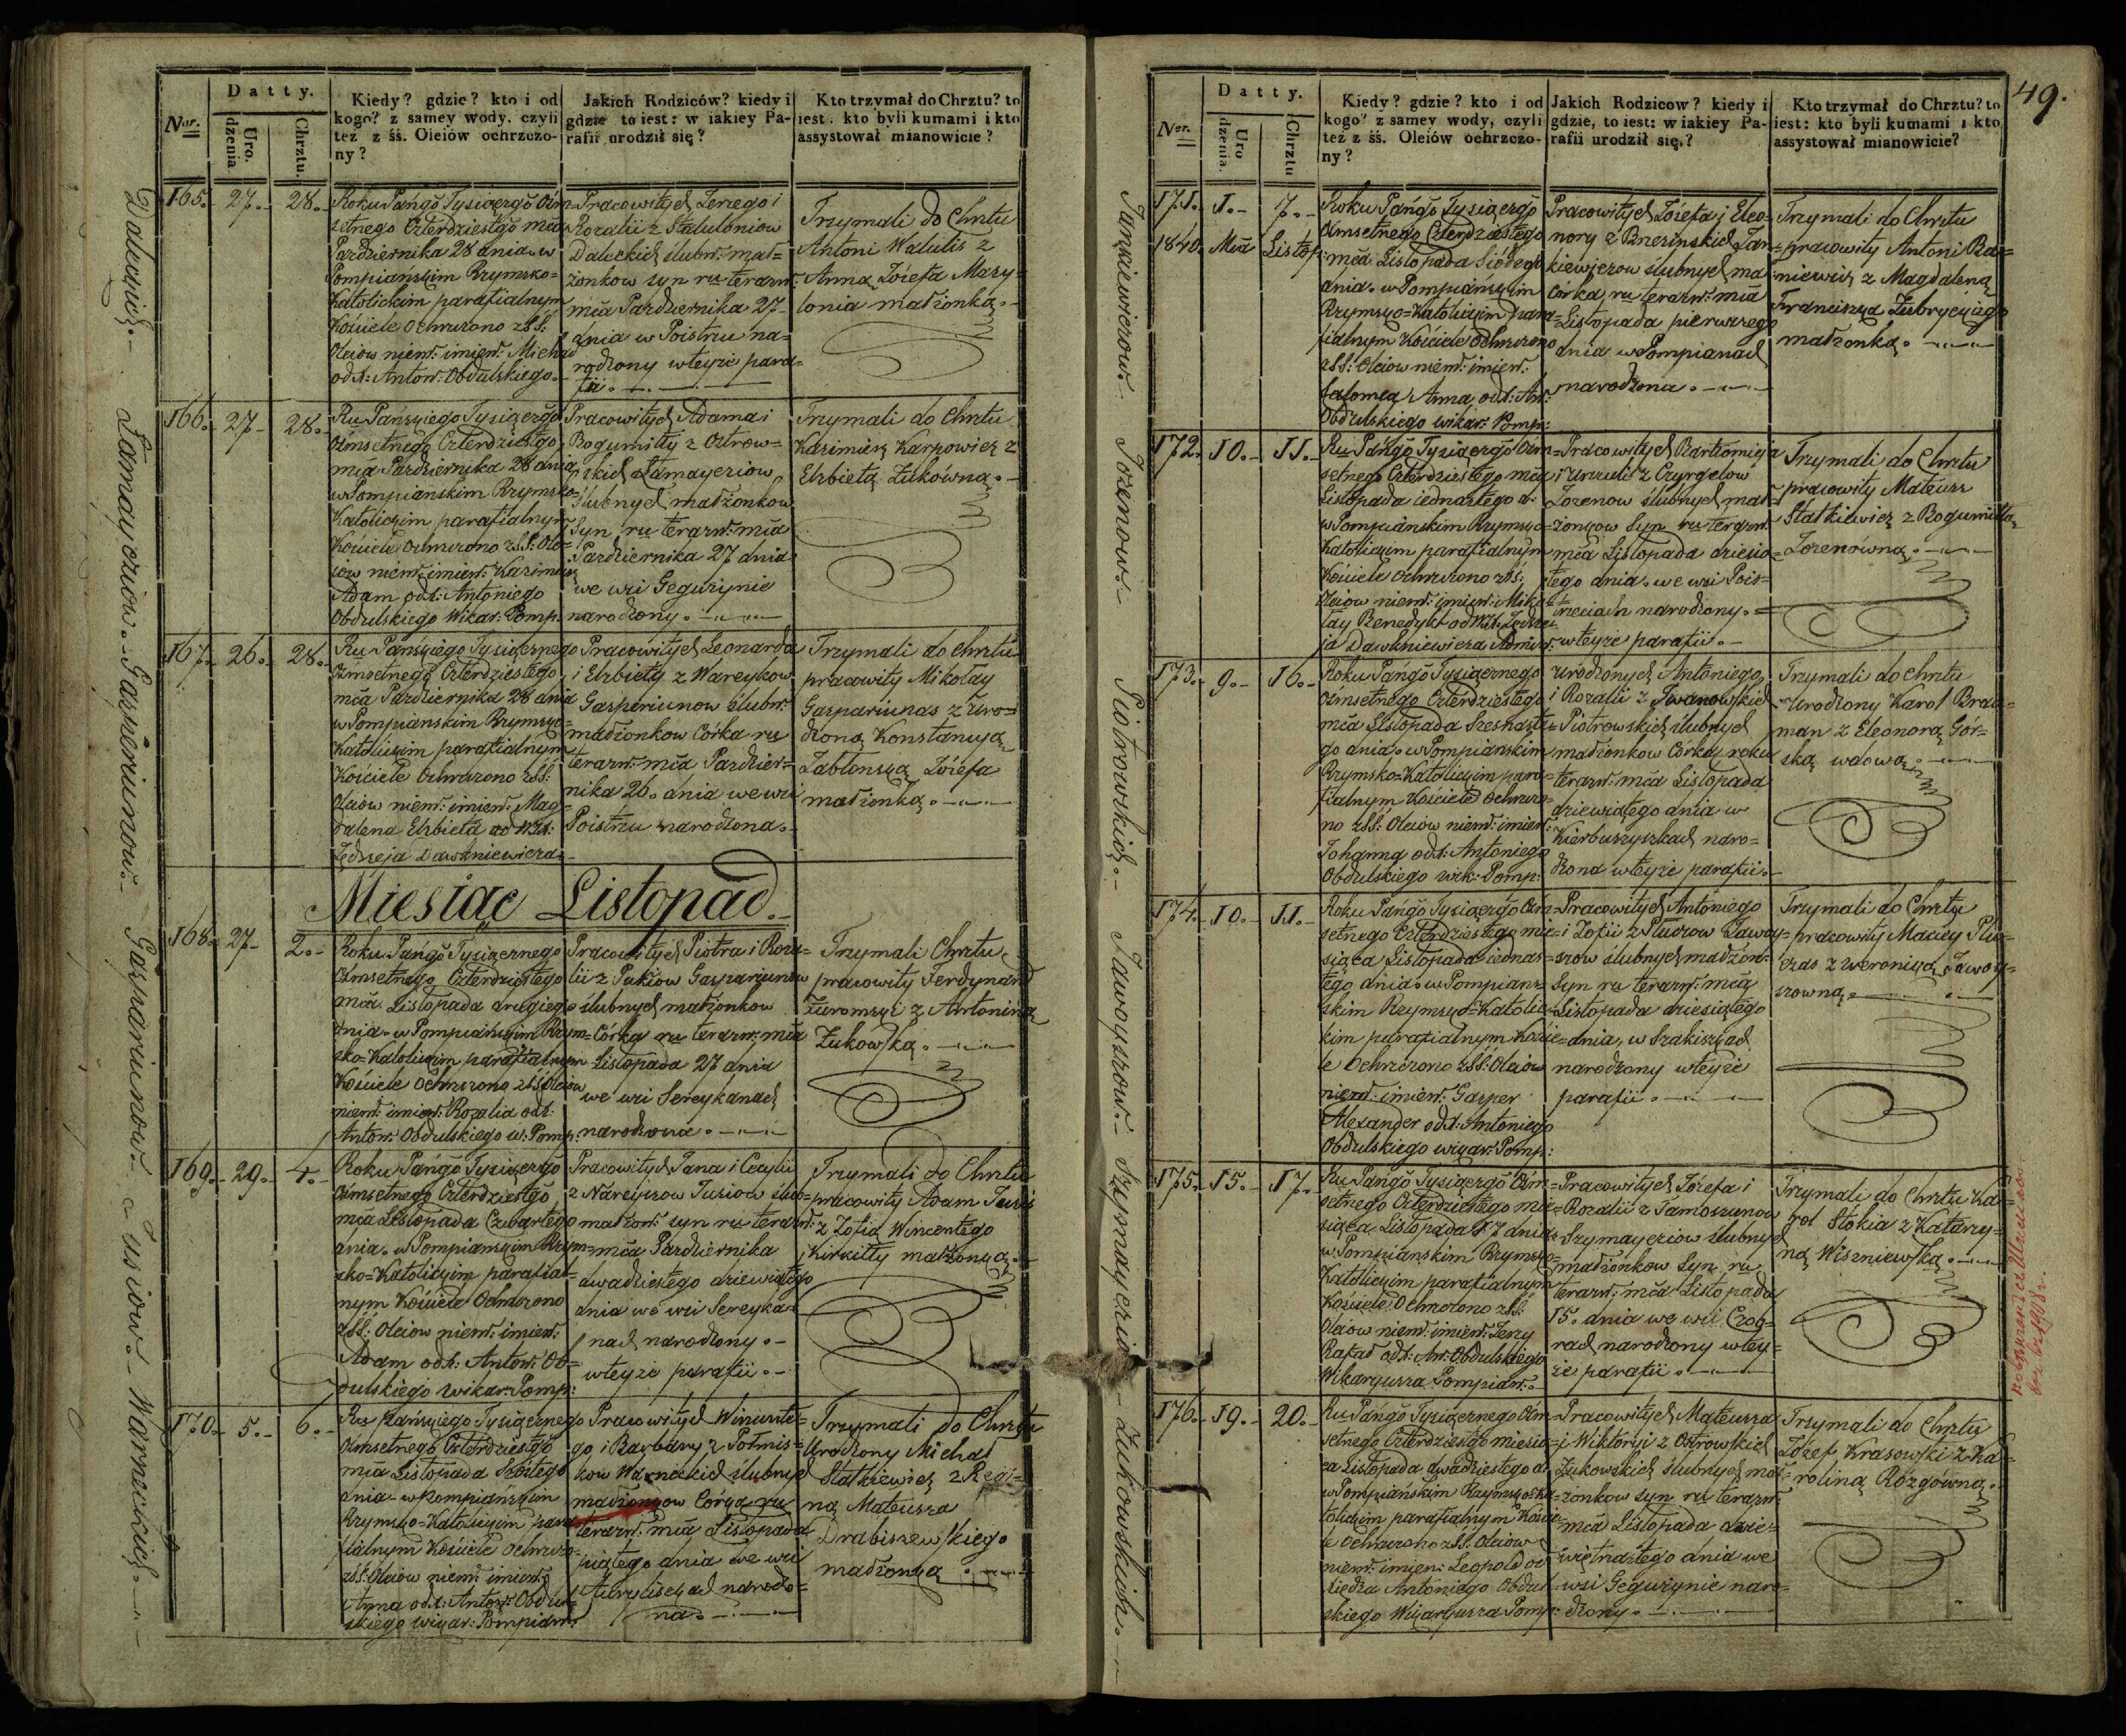 Datty.
Ner.
Uro.
dzenia.
Chrztu.
Kiedy? gdzie? kto i od
kogo? z samey wody, czyli
też z śś. Oleiów ochrzczo-
ny?
Jakich Rodziców? kiedy i
gdzie to iest: w iakiey Pa-
rafii urodził się?
Kto trzymał do Chrztu? to
iest: kto byli kumami i kto
assystował mianowicie?
165. 27. 28.
Roku Pańgo Tysiącgo Ośm-
setnego Czterdziestgo mca
Pazdziernika 28 dnia w
Pompianskim Rzymsko-
Katolickim parafialnym
Kościele Ochrzczono z SS:
Oleiów niem: imien: Michał
od X: Anton: Obdulskiego.
Pracowitych Jerzego i
Rozalii z
Daleckich ślubn: mał-
żonkow syn ru teraz:
mca Pazdziernika 27
dnia w Poistrzu na-
rodzony w teyże para-
fii.
Trzymali do Chrztu
Antoni Walulis z
Anną Józefa Mazy-
lonia małżonką.
166. 27. 28.
Ru Pańskiego Tysiącgo
Ośmsetnego Czterdziestgo
mca Pazdziernika 28 dnia
w Pompianskim Rzymsko-
Katolickim parafialnym
Kościele Ochrzczono z SS: Ole-
iow niem: imien: Kazimierz
Adam od X: Antoniego
Obdulskiego Wikar: Pomp:
Pracowitych Adama i
Bogumiły z Ostrow-
skich Łamayczów
ślubnych małżonkow
Syn ru teraz: mca
Pazdziernika 27 dnia
we wsi Gegużynie
narodzony.
Trzymali do Chrztu
Kazimierz Karpowicz z
Elzbietą Żukówną.
167. 26. 28.
Ru Pańskiego Tysiącznego
Ośmsetnego Czterdziestego
mca Pazdziernika 28 dnia
w Pompianskim Rzymsko-
Katolickim parafialnym
Kościele Ochrzczono z SS:
Oleiow niem: imien: Mag-
dalena Elzbieta od WJX:
Jędrzeja Dawkniewicza
Pracowitych Leonarda
i Elzbiety z Wareykow
Gasperiunow ślubn:
małżonkow Córka ru
teraz: mca Pazdzier-
nika 26. dnia we wsi
Poistrzu narodzona.
Trzymali do Chrztu
pracowity Mikołay
Gaspariunas z Uro-
dzoną Konstancyą
Jabłonską Józefa
małżonką.
Miesiąc Listopad.
168. 27 2.
Roku Pańgo Tysiącznego
Ośmsetnego Czterdziestego
mca Listopada drugiego
dnia w Pompianskim Rzym-
sko-Katolickim parafialnym
Kościele Ochrzczono z SS Oleiow
niem: imien: Rozalia od X:
Anton: Obdulskiego w: Pomp:
Pracowitych Piotra i Roza-
lii z Pukiow Gaspariunow
ślubnych małżonkow
Córka ru teraz: mca
Listopada 27 dnia
we wsi Sereykanach
narodzona.
Trzymali Chrztu
pracowity Ferdynand
Żeromski z Antoniną
Żukowską.
169. 29. 4.
Roku Pańgo Tysiącgo
Ośmsetnego Czterdziestgo
mca Listopada Czwartego
dnia w Pompianskim Rzym-
sko-Katolickim parafial-
nym Kościele Ochrzczono
z SS: Oleiow niem: imien:
Adam od X: Anton: Ob-
dulskiego wikar: Pomp:
Pracowitych Jana i Cecylii
z Nareyszow Jusiow ślub-
małżon: syn ru teraz:
mca Pazdziernika
dwadziestego dziewiątego
dnia we wsi Sereyka-
nach narodzony.
w teyże parafii.
Trzymali do Chrztu
pracowity Adam Jusis
z Zofią Wincentego
Kirkiłły małżonką.
170. 5. 6.
Ru Pańskiego Tysiącznego
Ośmsetnego Czterdziestgo
mca Listopada Szóstego
dnia w Pompianskim
Rzymsko-Katolickim para-
fialnym Kościele Ochrzczo-
z SS: Oleiów niem: imien:
Anna od X: Anton: Obdul-
skiego wikar: Pompian:
Pracowitych Wincente-
go i Barbary z Potmis-
kow Warneckich ślubnych
małżonkow Córka ru
teraz: mca Listopada
piątego dnia we wsi
narodzo-
na.
Trzymali do Chrztu
Urodzony Michał
Statkiewicz z Regi-
ną Mateusza
Drabiszewskiego
małżonką.
Daleckich. Łamayczow. Gasperiunow. Gaspariunow. Jusiow. Warneckich.
49.
Datty.
Ner.
Uro
dzenia.
Chrztu
Kiedy? gdzie? kto i od
kogo? z samey wody, czyli
też z śś. Oleiów ochrzczo-
ny?
Jakich Rodzicow? kiedy i
gdzie, to iest: w iakiey Pa-
rafii urodził się?
Kto trzymał do Chrztu? to
iest: kto byli kumami i kto
assystował mianowicie?
171. 1. 7.
1840. Mca Listop:
Roku Pańgo Tysiącgo
Ośmsetnego Czterdziestego
mca Listopada Siódego
dnia w Pompianskim
Rzymsko-Katolickim para-
fialnym Kościele Ochrzczono
z SS: Oleiów niem: imien:
Salomea Anna od X: An:
Obdulskiego wikar: Pomp:
Pracowitych Józefa i Eleo-
nory z Bnezinskich Jan-
kiewiczow ślubnych ma:
Córka, ru teraz: mca
Listopada pierwszego
dnia w Pompianach
narodzona.
Trzymali do Chrztu
pracowity Antoni Ba-
niewicz z Magdaleną
Franciszka Zubryckiego
małżonką.
172. 10. 11.
Ru Pańgo Tysiącgo Ośm-
setnego Czterdziestego mca
Listopada iednastego d:
w Pompianskim Rzymsko-
Katolickim parafialnym
Kościele Ochrzczono z SS:
Oleiow niem: imien: Miko-
łay Benedykt od WJX: Jędrze-
ja Dawkniewicza Admin:
Pracowitych Bartłomieja
i Urszuli z Czyrgelow
Jozenow ślubnych mał-
żonkow Syn ru teraz:
mca Listopada dziesią-
tego dnia we wsi Pois-
trzeciach narodzony.
w teyże parafii.
Trzymali do Chrztu
pracowity Mateusz
Statkiewicz z Bogumiłłą
Jozenówną.
173. 9. 16.
Roku Pańgo Tysiącznego
Ośmsetnego Czterdziestego
mca Listopada Szesnaste-
go dnia w Pompianskim
Rzymsko-Katolickim para-
fialnym Kościele Ochrzczo-
no z SS: Oleiow niem: imien:
Johanna od X: Antoniego
Obdulskiego wik: Pomp:
Urodzonych Antoniego
i Rozalii z Iwanowskich
Piotrowskich ślubnych
małżonkow Córka roku
teraz: mca Listopada
dziewiątego dnia w
Kierbuszyszkach naro-
dzona w teyże parafii.
Trzymali do Chrztu
Urodzony Karol Bra-
man z Eleonorą Gór-
ską wdową.
174. 10. 11.
Roku Pańgo Tysiącgo Ośm-
setnego Czterdziestego mie-
siąca Listopada iednas-
tego dnia w Pompian-
skim Rzymsko-Katolic-
kim parafialnym Koście-
le Ochrzczono z SS: Oleiow
niem: imien: Gasper
Alexander od X: Antoniego
Obdulskiego wikar: Pomp:
Pracowitych Antoniego
i Zofii z Płuczow Jaway-
szow ślubnych małżon:
Syn ru teraz: mca
Listopada dziesiątego
dnia, w Szakiszkach
narodzony w teyże
parafii.
Trzymali do Chrztu
pracowity Maciey Plu-
czas z Weroniką Jaway-
szowną.
175. 15. 17.
Ru Pańgo Tysiącgo Ośm-
setnego Czterdziestego mie-
siąca Listopada 17 dnia
w Pompianskim Rzymsko-
Katolickim parafialnym
Kościele Ochrzczono z SS:
Oleiow niem: imien: Jerzy
Rafał od X: An: Obdulskiego
Wikaryusza Pompian:
Pracowitych Józefa i
Rozalii z Tamoszunow
Szymayczow ślubnych
małżonkow Syn ru
teraz: mca Listopada
15. dnia we wsi
narodzony w tey-
że parafii.
Trzymali do Chrztu Ka-
rol Stokia z Katarzy-
ną Wiszniewską.
176. 19. 20.
Ru Pańgo Tysiącznego Ośm-
setnego Czterdziestgo miesią-
ca Listopada dwadziestego d:
w Pompianskim Rzymsko-Ka-
tolickim parafialnym Koście-
le Ochrzczono z SS. Oleiow
niem: imien: Leopold od
Xiędza Antoniego Obdul-
skiego Wikaryusza Pomp:
Pracowitych Mateusza
i Wiktoryi z Ostrowskich
Żukowskich ślubnych mał-
żonkow syn ru teraz:
mca Listopada dzie-
więtnastego dnia we
wsi Gegużynie naro-
dzony.
Trzymali do Chrztu
Józef Krasowski z Ka-
roliną Rózgówną.
Jankiewiczow. Jozenow. Piotrowskich. Jawayszow. Szymayczow. Żukowskich.